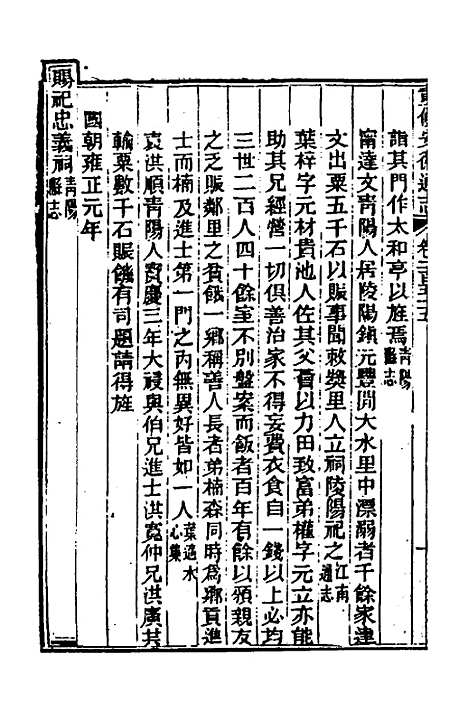 重修安徽通志 卷二百五十五
詣其門作太和亭以旌焉青陽縣志
甯達文青陽人居陵陽鎮元豐間大水里中漂溺者千餘家達
文出粟五千石以賑事聞敕獎里人立祠陵陽祀之江南通志
葉梓字元材貴池人佐其父晉以力田致富弟權字元立亦能
助其兄經營一切俱善治家不得妄費衣食自一錢以上必均
三世二百人四十餘室不別盤案而飯者百年有餘以預親友
之乏賑鄰里之貧餓一鄉稱善人長者弟楠森同時爲鄉貢進
士而楠及進士第一門之內無異好皆如一人葉適水心集
袁洪順青陽人寳慶三年大祲與伯兄進士洪寬仲兄洪廣共
輸粟數千石賑饑有司題請得旌
國朝雍正元年
賜祀忠義祠青陽縣志